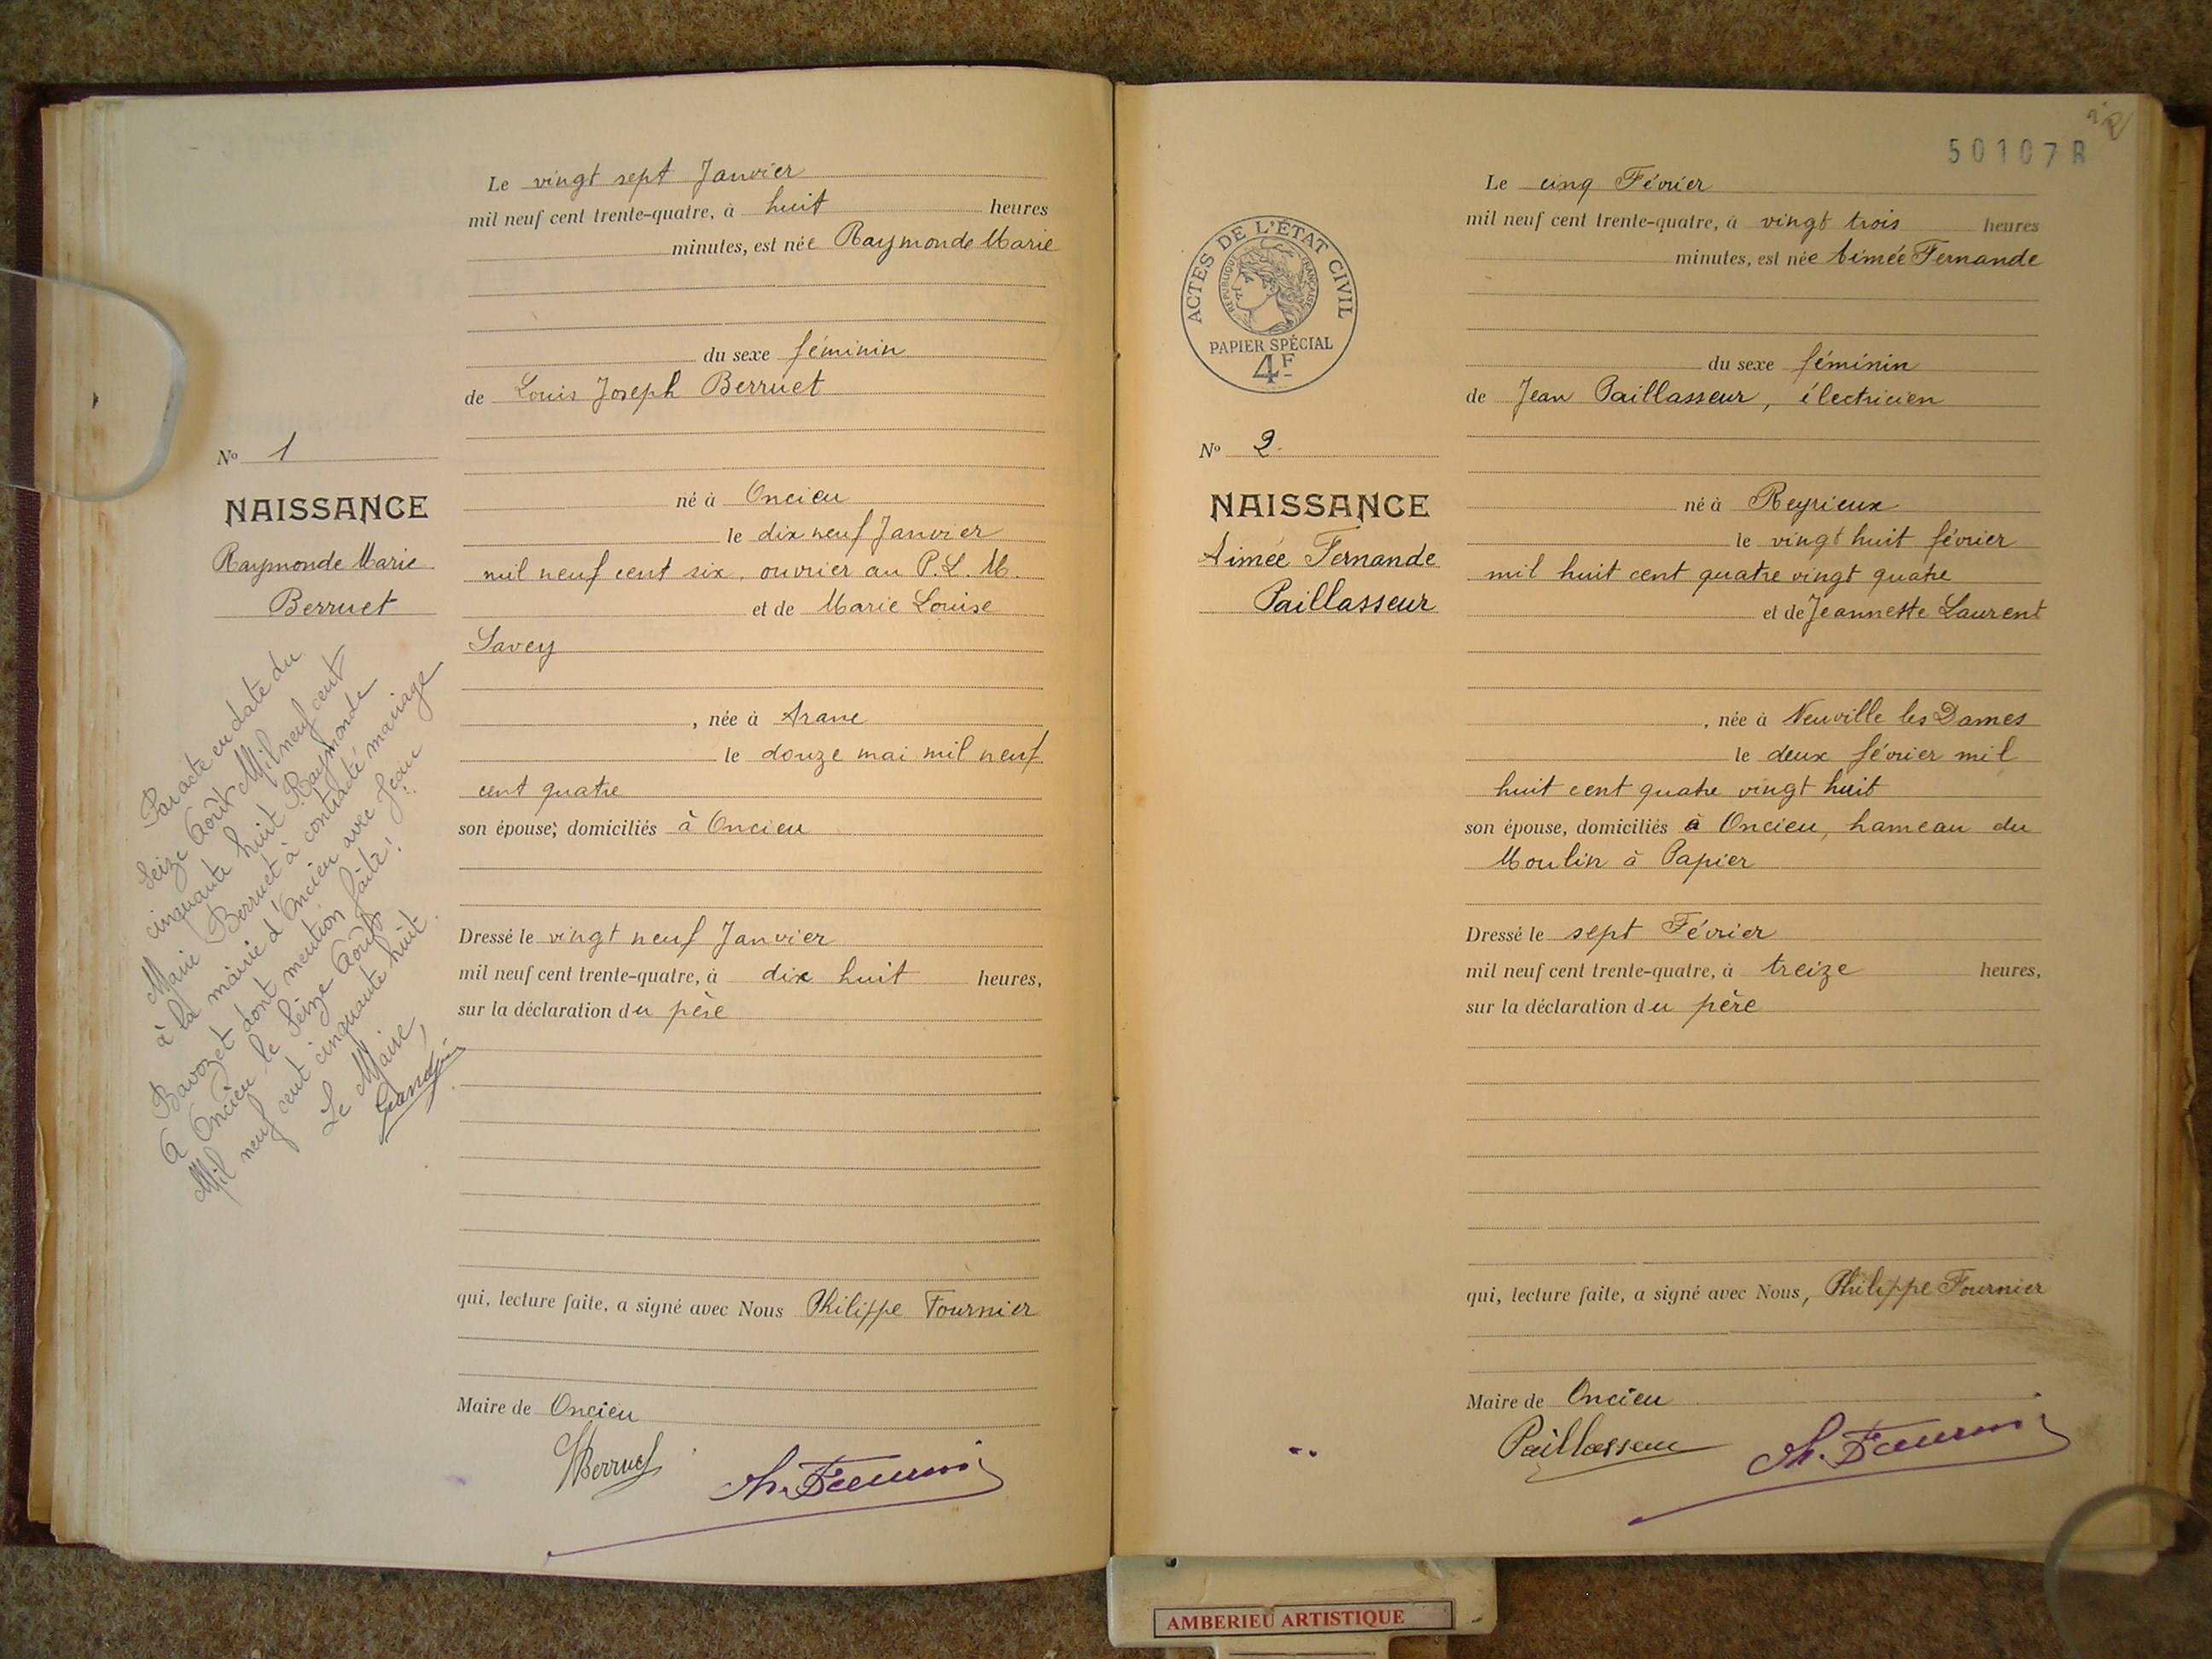 Le vingt sept Janvier
mil neuf cent trente-quatre, à huit heures
minutes, est née Raymonde Marie
du sexe féminin
de Louis Joseph Berruet
né à Oncieu
le dix neuf Janvier
mil neuf cent six, ouvrier au P.L.M.
et de Marie Louise
Savey
, née à Arane
le douze mai mil neuf
cent quatre
son épouse, domiciliés à Oncieu
Dressé le vingt neuf Janvier
mil neuf cent trente-quatre, à dix huit heures,
sur la déclaration du père
qui, lecture faite, a signé avec Nous Philippe Fournier
Maire de Oncieu
Berruet
Ph. Fournier
No 1
NAISSANCE
Raymonde Marie
Berruet
Par acte en date du
Seize Août Mil neuf cent
cinquante huit Raymonde
Marie Berruet à contracté mariage
à la mairie d'Oncieu avec Jean
Bavozet dont mention faite!
A Oncieu le Seize Août
Mil neuf cent cinquante huit.
Le Maire,
50107 R
Le cinq Février
mil neuf cent trente-quatre, à vingt trois heures
minutes, est née Aimée Fernande
du sexe féminin
de Jean Paillasseur, électricien
né à Reyrieux
le vingt huit février
mil huit cent quatre vingt quatre
et de Jeannette Laurent
, née à Neuville les Dames
le deux février mil
huit cent quatre vingt huit
son épouse, domiciliés à Oncieu, hameau du
Moulin à Papier
Dressé le sept Février
mil neuf cent trente-quatre, à treize heures,
sur la déclaration du père
qui, lecture faite, a signé avec Nous, Philippe Fournier
Maire de Oncieu
Paillasseur
Ph. Fournier
ACTES DE L'ÉTAT CIVIL
RÉPUBLIQUE FRANÇAISE
PAPIER SPÉCIAL
4F
No 2.
NAISSANCE
Aimée Fernande
Paillasseur
AMBERIEU ARTISTIQUE